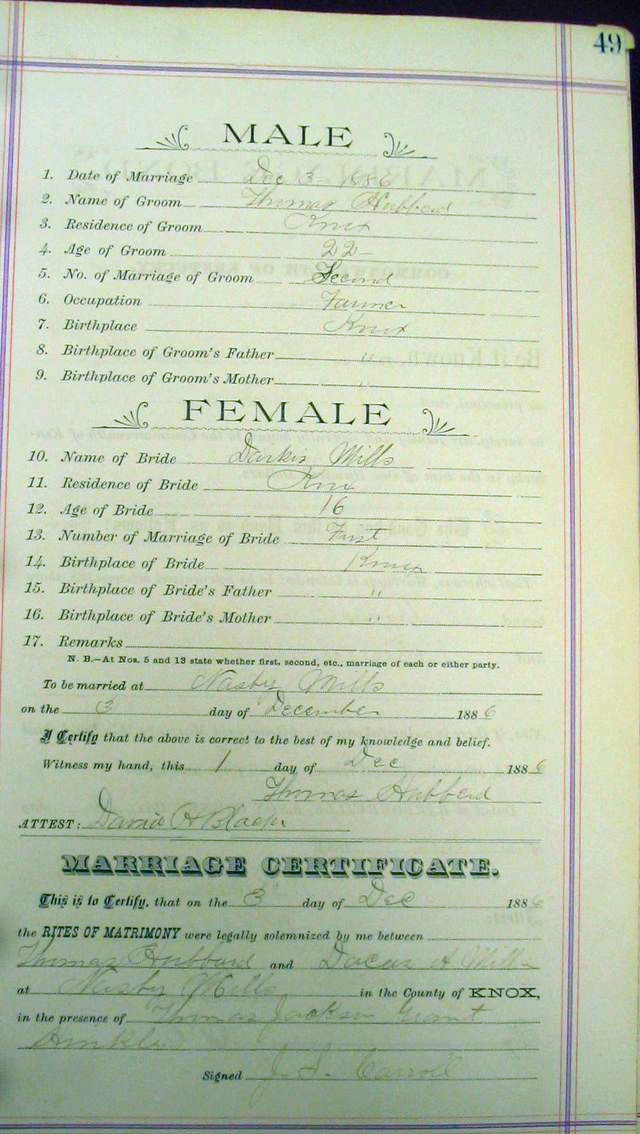 49
MALE
1. Date of Marriage Dec 3 1886
2. Name of Groom Thomas Hubbard
3. Residence of Groom Knox
4. Age of Groom 22
5. No. of Marriage of Groom Second
6. Occupation Farmer
7. Birthplace Knox
8. Birthplace of Groom's Father "
9. Birthplace of Groom's Mother "
FEMALE
10. Name of Bride Darkis Mills
11. Residence of Bride Knx
12. Age of Bride 16
13. Number of Marriage of Bride First
14. Birthplace of Bride Knox
15. Birthplace of Bride's Father "
16. Birthplace of Bride's Mother "
17. Remarks
N. B.—At Nos. 5 and 13 state whether first, second, etc., marriage of each or either party.
To be married at Nasby Mills
on the 3 day of December 1886
I Certify that the above is correct to the best of my knowledge and belief.
Witness my hand, this 1 day of Dec 1886
Thomas Hubbard
ATTEST: David H
MARRIAGE CERTIFICATE.
This is to Certify, that on the 3 day of Dec 1886
the RITES OF MATRIMONY were legally solemnized by me between
Thomas Hubbard and Dacus A Mills
at Nasby Mills in the County of KNOX,
in the presence of Thomas Jackson Grant
Hinkle
Signed J. S. Carroll